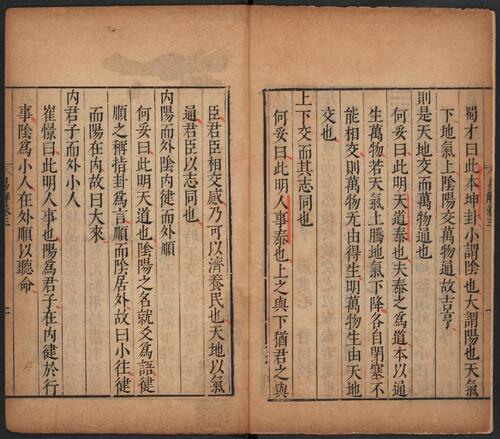 蜀才曰此本坤卦小謂陰也大謂陽也天氣
下地氣上陰陽交萬物通故吉亨
則是天地交而萬物通也
何妥曰此明天道泰也夫泰之爲道本以通
生萬物若天氣上騰地氣下降各自閉塞不
能相交則萬物无由得生明萬物生由天地
交也
上下交而其志同也
何妥曰此明人事泰也上之與下猶君之與
臣君臣相交感乃可以濟養民也天地以氣
通君臣以志同也
內陽而外陰內健而外順
何妥曰此明天道也陰陽之名就爻爲語健
順之稱指卦爲言順而陰居外故曰小往健
而陽在內故曰大來
內君子而外小人
崔憬曰此明人事也陽爲君子在內健於行
事陰爲小人在外順以聽命